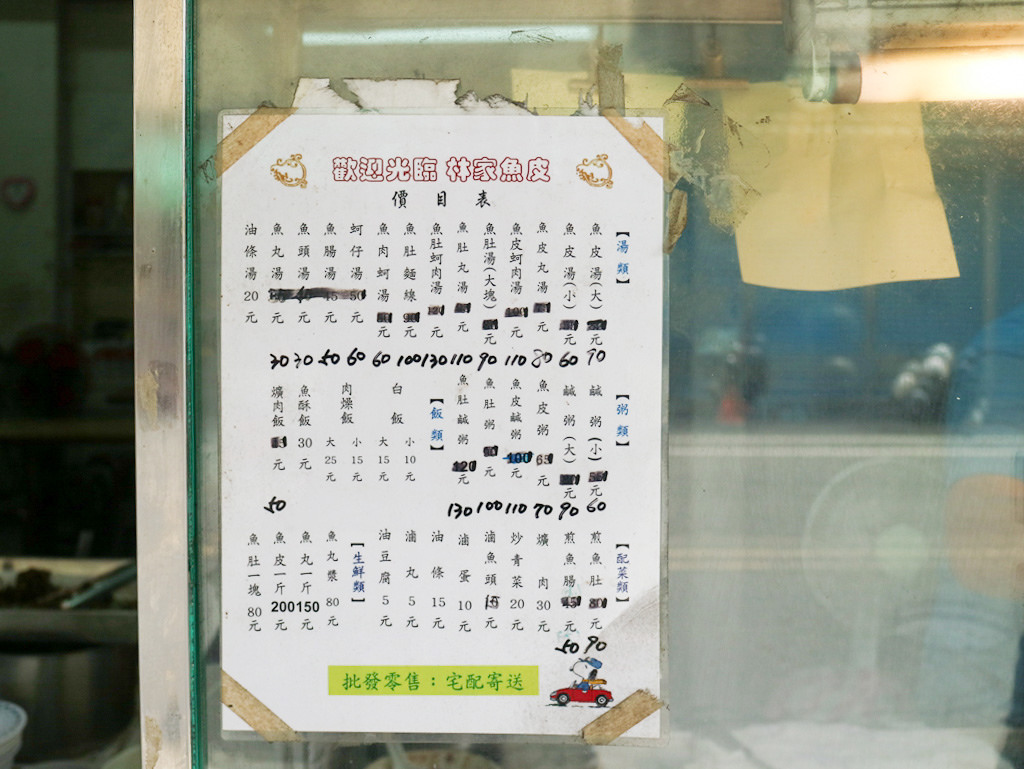 歡迎光臨 林家魚皮
價目表
【湯類】
魚皮湯(大)元 90
魚皮湯(小)元 60
魚皮丸湯元 80
魚皮蚵肉湯元 110
魚肚湯(大塊)元 90
魚肚丸湯元 110
魚肚蚵肉湯元 130
魚肚麵線元 100
魚肉蚵湯元 60
蚵仔湯元 60
魚腸湯元 50
魚頭湯元 30
魚丸湯元 30
油條湯20元
【粥類】
鹹粥(小)元 60
鹹粥(大)元 90
魚皮粥元 70
魚皮鹹粥元 110
魚肚粥元 100
魚肚鹹粥元 130
【飯類】
白飯 小10元 大15元
肉燥飯 小15元 大25元
魚酥飯30元
爌肉飯元 50
【配菜類】
煎魚肚元 90
煎魚腸元 50
爌肉30元
炒青菜20元
滷魚頭15元
滷蛋10元
油條15元
滷丸5元
油豆腐5元
【生鮮類】
魚丸漿80元
魚丸一斤150元
魚皮一斤200元
魚肚一塊80元
批發零售：宅配寄送